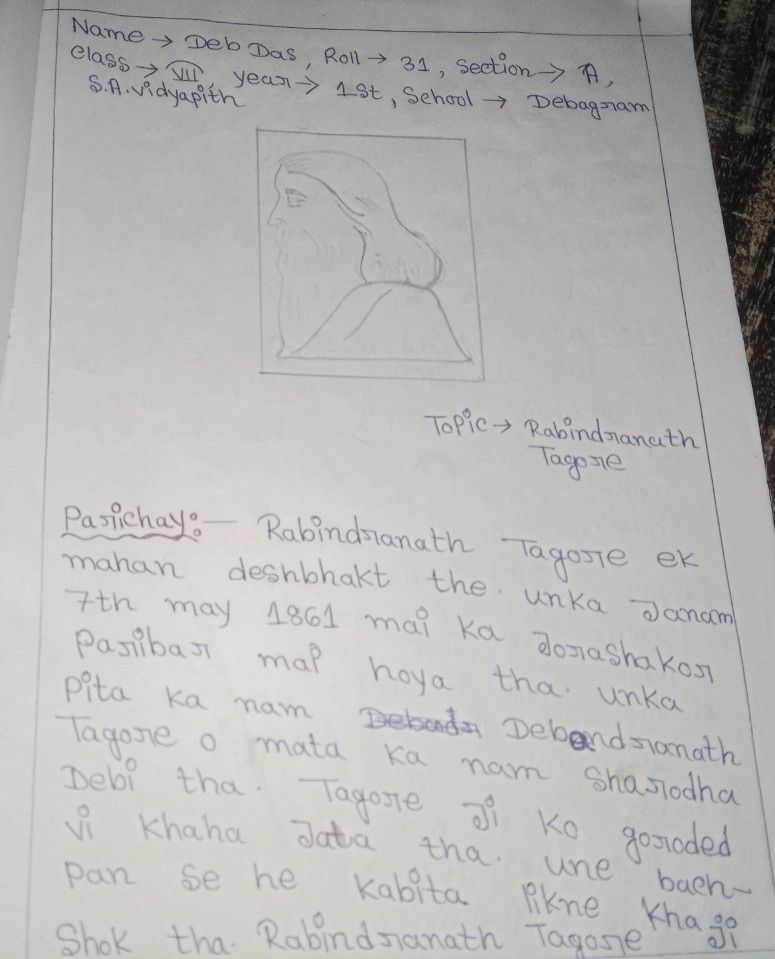 Name → Deb Das, Roll → 31, Section → A,
class → VII, year → 1st, School → Debagram
S.A. Vidyapith
Topic → Rabindranath
Tagore
Parichay:- Rabindranath Tagore ek
mahan deshbhakt the. unka Janam
7th may 1861 mai ka Jorashakor
Paribar mai hoya tha. unka
Pita ka nam Debendranath
Tagore o mata ka nam Sharodha
Debi tha. Tagore Ji ko goroded
vi khaha Jata tha. une bach-
pan se he kabita likne kha
Shok tha. Rabindranath Tagore Ji